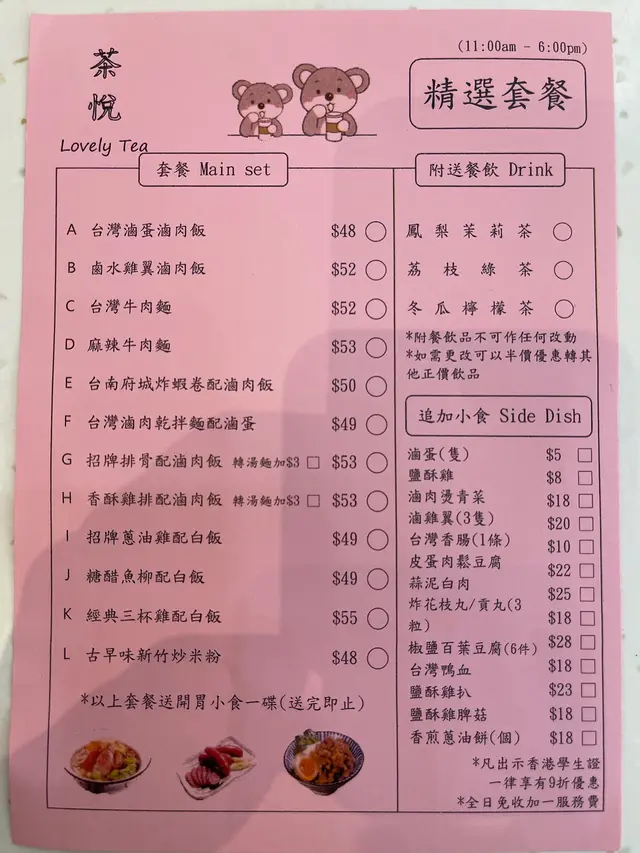 茶悅
Lovely Tea
(11:00am - 6:00pm)
精選套餐
套餐 Main set
A 台灣滷蛋滷肉飯 $48
B 鹵水雞翼滷肉飯 $52
C 台灣牛肉麵 $52
D 麻辣牛肉麵 $53
E 台南府城炸蝦卷配滷肉飯 $50
F 台灣滷肉乾拌麵配滷蛋 $49
G 招牌排骨配滷肉飯 轉湯麵加$3 □ $53
H 香酥雞排配滷肉飯 轉湯麵加$3 □ $53
I 招牌蔥油雞配白飯 $49
J 糖醋魚柳配白飯 $49
K 經典三杯雞配白飯 $55
L 古早味新竹炒米粉 $48
*以上套餐送開胃小食一碟(送完即止)
附送餐飲 Drink
鳳梨茉莉茶
荔枝綠茶
冬瓜檸檬茶
*附餐飲品不可作任何改動
*如需更改可以半價優惠轉其
他正價飲品
追加小食 Side Dish
滷蛋(隻) $5
鹽酥雞 $8
滷肉燙青菜 $18
滷雞翼(3隻) $20
台灣香腸(1條) $10
皮蛋肉鬆豆腐 $22
蒜泥白肉 $25
炸花枝丸/貢丸(3
粒) $18
椒鹽百葉豆腐(6件) $28
台灣鴨血 $18
鹽酥雞扒 $23
鹽酥雞脾菇 $18
香煎蔥油餅(個) $18
*凡出示香港學生證
一律享有9折優惠
*全日免收加一服務費